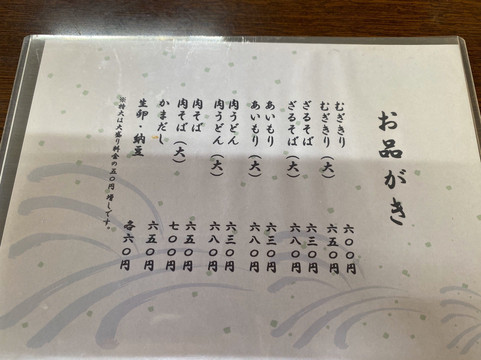 お品がき
むぎきり 六〇〇円
むぎきり（大） 六五〇円
ざるそば 六三〇円
ざるそば（大） 六八〇円
あいもり 六三〇円
あいもり（大） 六八〇円
肉うどん 六三〇円
肉うどん（大） 六八〇円
肉そば 六五〇円
肉そば（大） 七〇〇円
かまだし 六五〇円
生卵・納豆 各六〇円
※特大は大盛り料金の五〇円増しです。